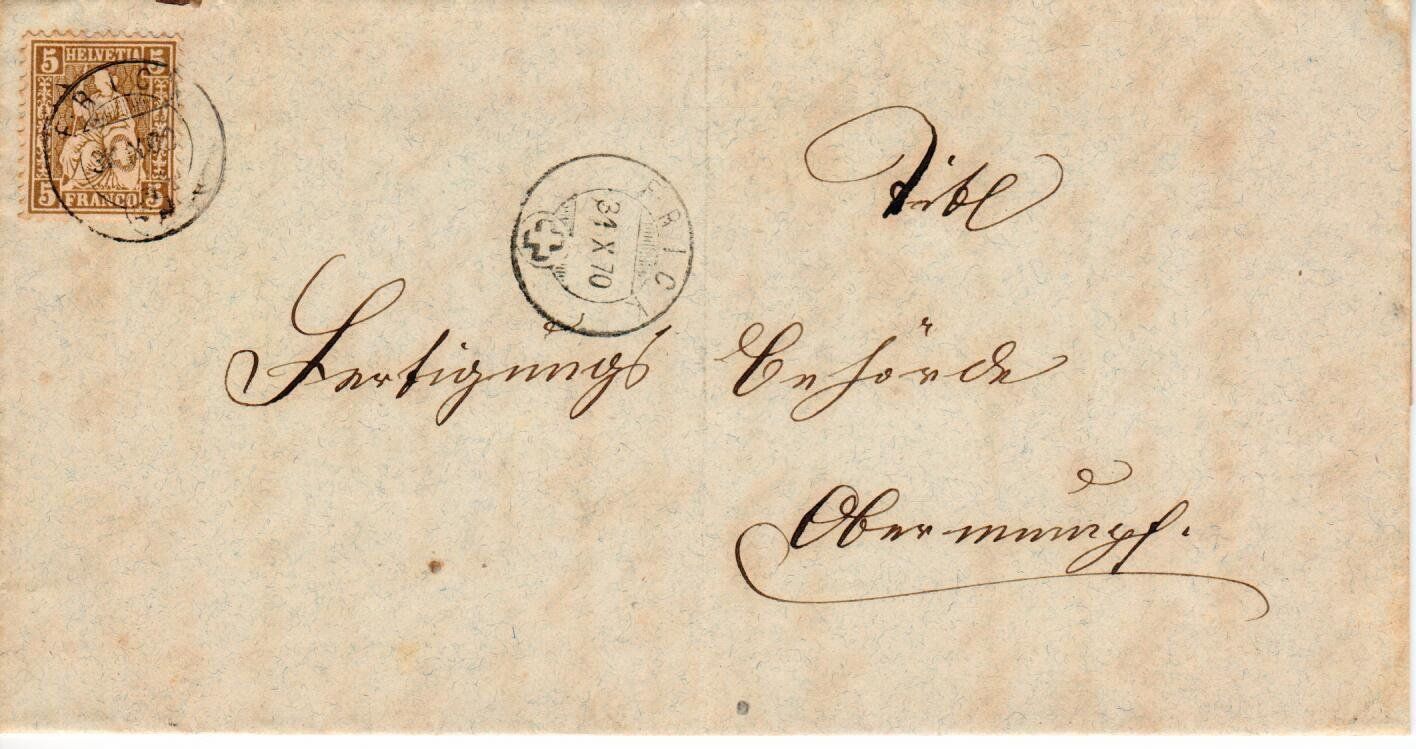 5 HELVETIA 5
5 FRANCO 5
FRICK
FRICK
31 X 70
Titl
Fertigungs Behörde
Obermumpf.